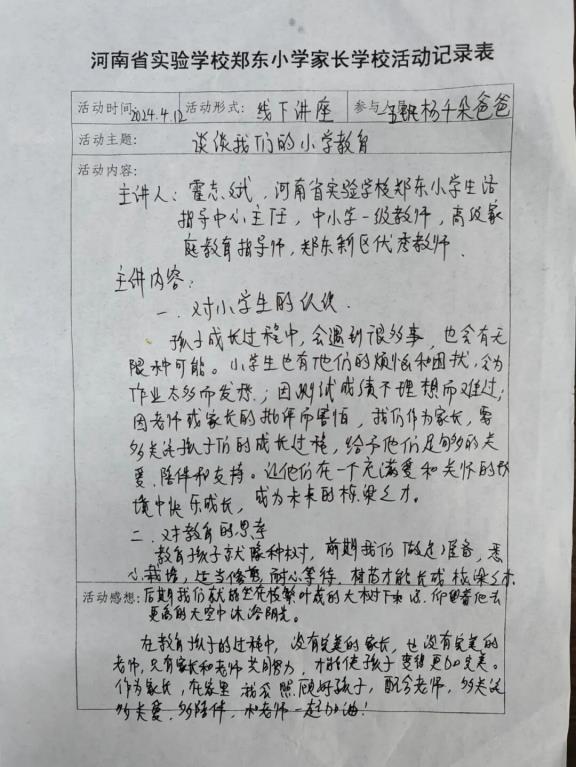 河南省实验学校郑东小学家长学校活动记录表
活动时间: 2024.4.12 活动形式: 线下讲座 参与人: 杨千朵爸爸
活动主题: 谈谈我们的小学教育
活动内容:
主讲人：霍志斌，河南省实验学校郑东小学生活
指导中心主任，中小学一级教师，高级家
庭教育指导师，郑东新区优秀教师.
主讲内容：
一、对小学生的认识.
孩子成长过程中，会遇到很多事，也会有无
限种可能。小学生也有他们的烦恼和困扰，会为
作业太多而发愁；因测试成绩不理想而难过；
因老师或家长的批评而害怕，我们作为家长，要
多关注孩子们的成长过程，给予他们足够多的关
爱、陪伴和支持。让他们在一个充满爱和关怀的环
境中快乐成长，成为未来的栋梁之才。
二、对教育的思考
教育孩子就像种树，前期我们做足准备，悉
心栽培，适当修剪，耐心等待，树苗才能长成栋梁之木.
活动感想: 后期我们就能坐在枝繁叶茂的大树下 仰望着他去
更高的天空中沐浴阳光。
在教育孩子的过程中，没有完美的家长，也没有完美的
老师，只有家长和老师共同努力，才能使孩子变得更加完美。
作为家长，在家里我会照顾好孩子，配合老师，多关注
多关爱，多陪伴，和老师一起加油！